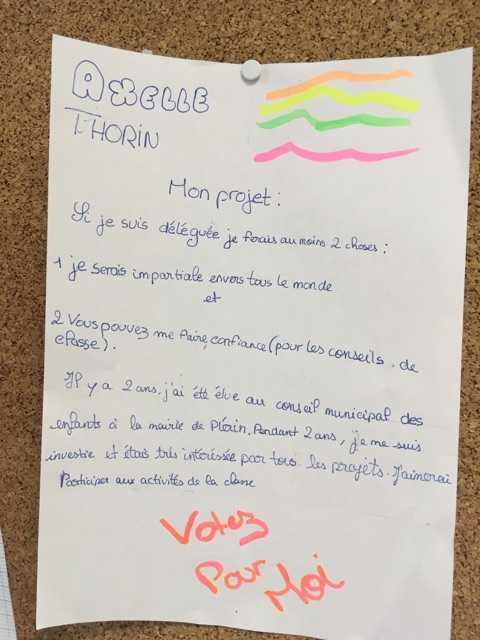 AXELLE
THORIN
Mon projet :
Si je suis déléguée je ferais au moins 2 choses :
1 je serais impartiale envers tous le monde
et
2 Vous pouvez me faire confiance (pour les conseils de
classe).
Il y a 2 ans, j'ai été élue au conseil municipal des
enfants à la mairie de Plérin. Pendant 2 ans, je me suis
investie et étais très intéressée par tous les projets. J'aimerai
Participer aux activités de la classe
Votez
Pour Moi